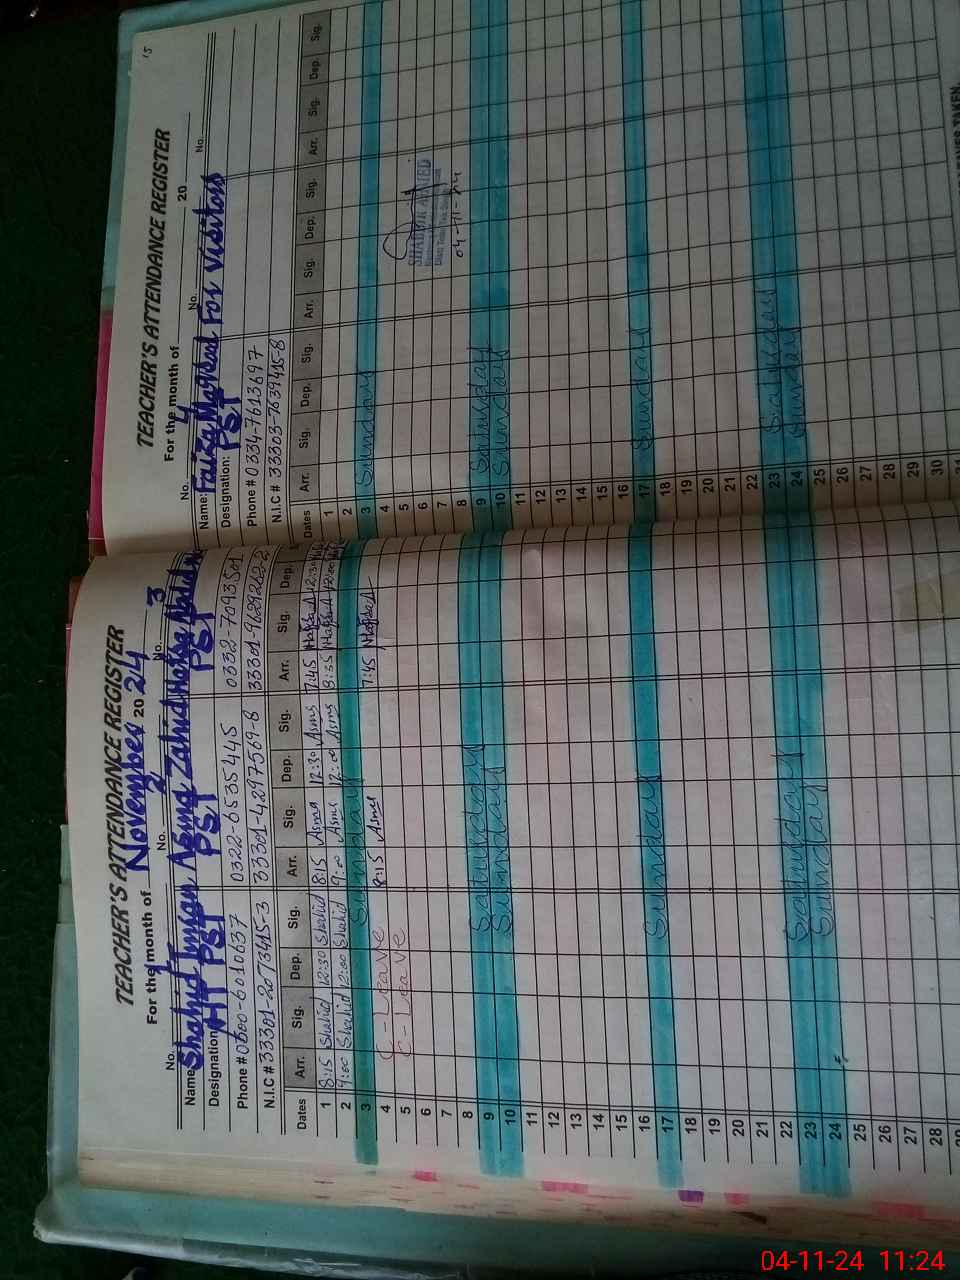 TEACHER'S ATTENDANCE REGISTER
For the month of November 20 24
No. 1 No. 2 No. 3
Name: Shahid Imran Asma Zahid Hafsa
Designation HT PST PST PST
Phone # 0300-6010637 0322-6535445 0332-7093501
N.I.C # 33301-2073415-3 33301-4297569-8 33301-9629262-2
Dates Arr. Sig. Dep. Sig. Arr. Sig. Dep. Sig. Arr. Sig. Dep.
1 8:15 Shahid 12:30 Shahid 8:15 Asma 12:30 Asma 7:45 Hafsa 12:30
2 9:00 Shahid 12:00 Shahid 9:00 Asma 12:00 Asma 8:55 Hafsa 12:00
3 Sunday
4 C-Leave 8:15 Asma 7:45 Hafsa
5 C-Leave
6
7
8
9 Saturday
10 Sunday
11
12
13
14
15
16
17 Sunday
18
19
20
21
22
23 Saturday
24 Sunday
25
26
27
28
29
15
TEACHER'S ATTENDANCE REGISTER
For the month of 20
No. 4 No. No.
Name: Faiza Maqsood For Visitors
Designation: PST
Phone # 0334-7613697
N.I.C # 33303-7639415-8
Dates Arr. Sig. Dep. Sig. Arr. Sig. Dep. Sig. Arr. Sig. Dep. Sig.
1
2
3 Sunday
4
5
6
7
8
9 Saturday
10 Sunday
11
12
13
14
15
16
17 Sunday
18
19
20
21
22
23 Saturday
24 Sunday
25
26
27
28
29
30
31
SHABBIR AHMED
04-11-24
LEAVES TAKEN.
04-11-24 11:24